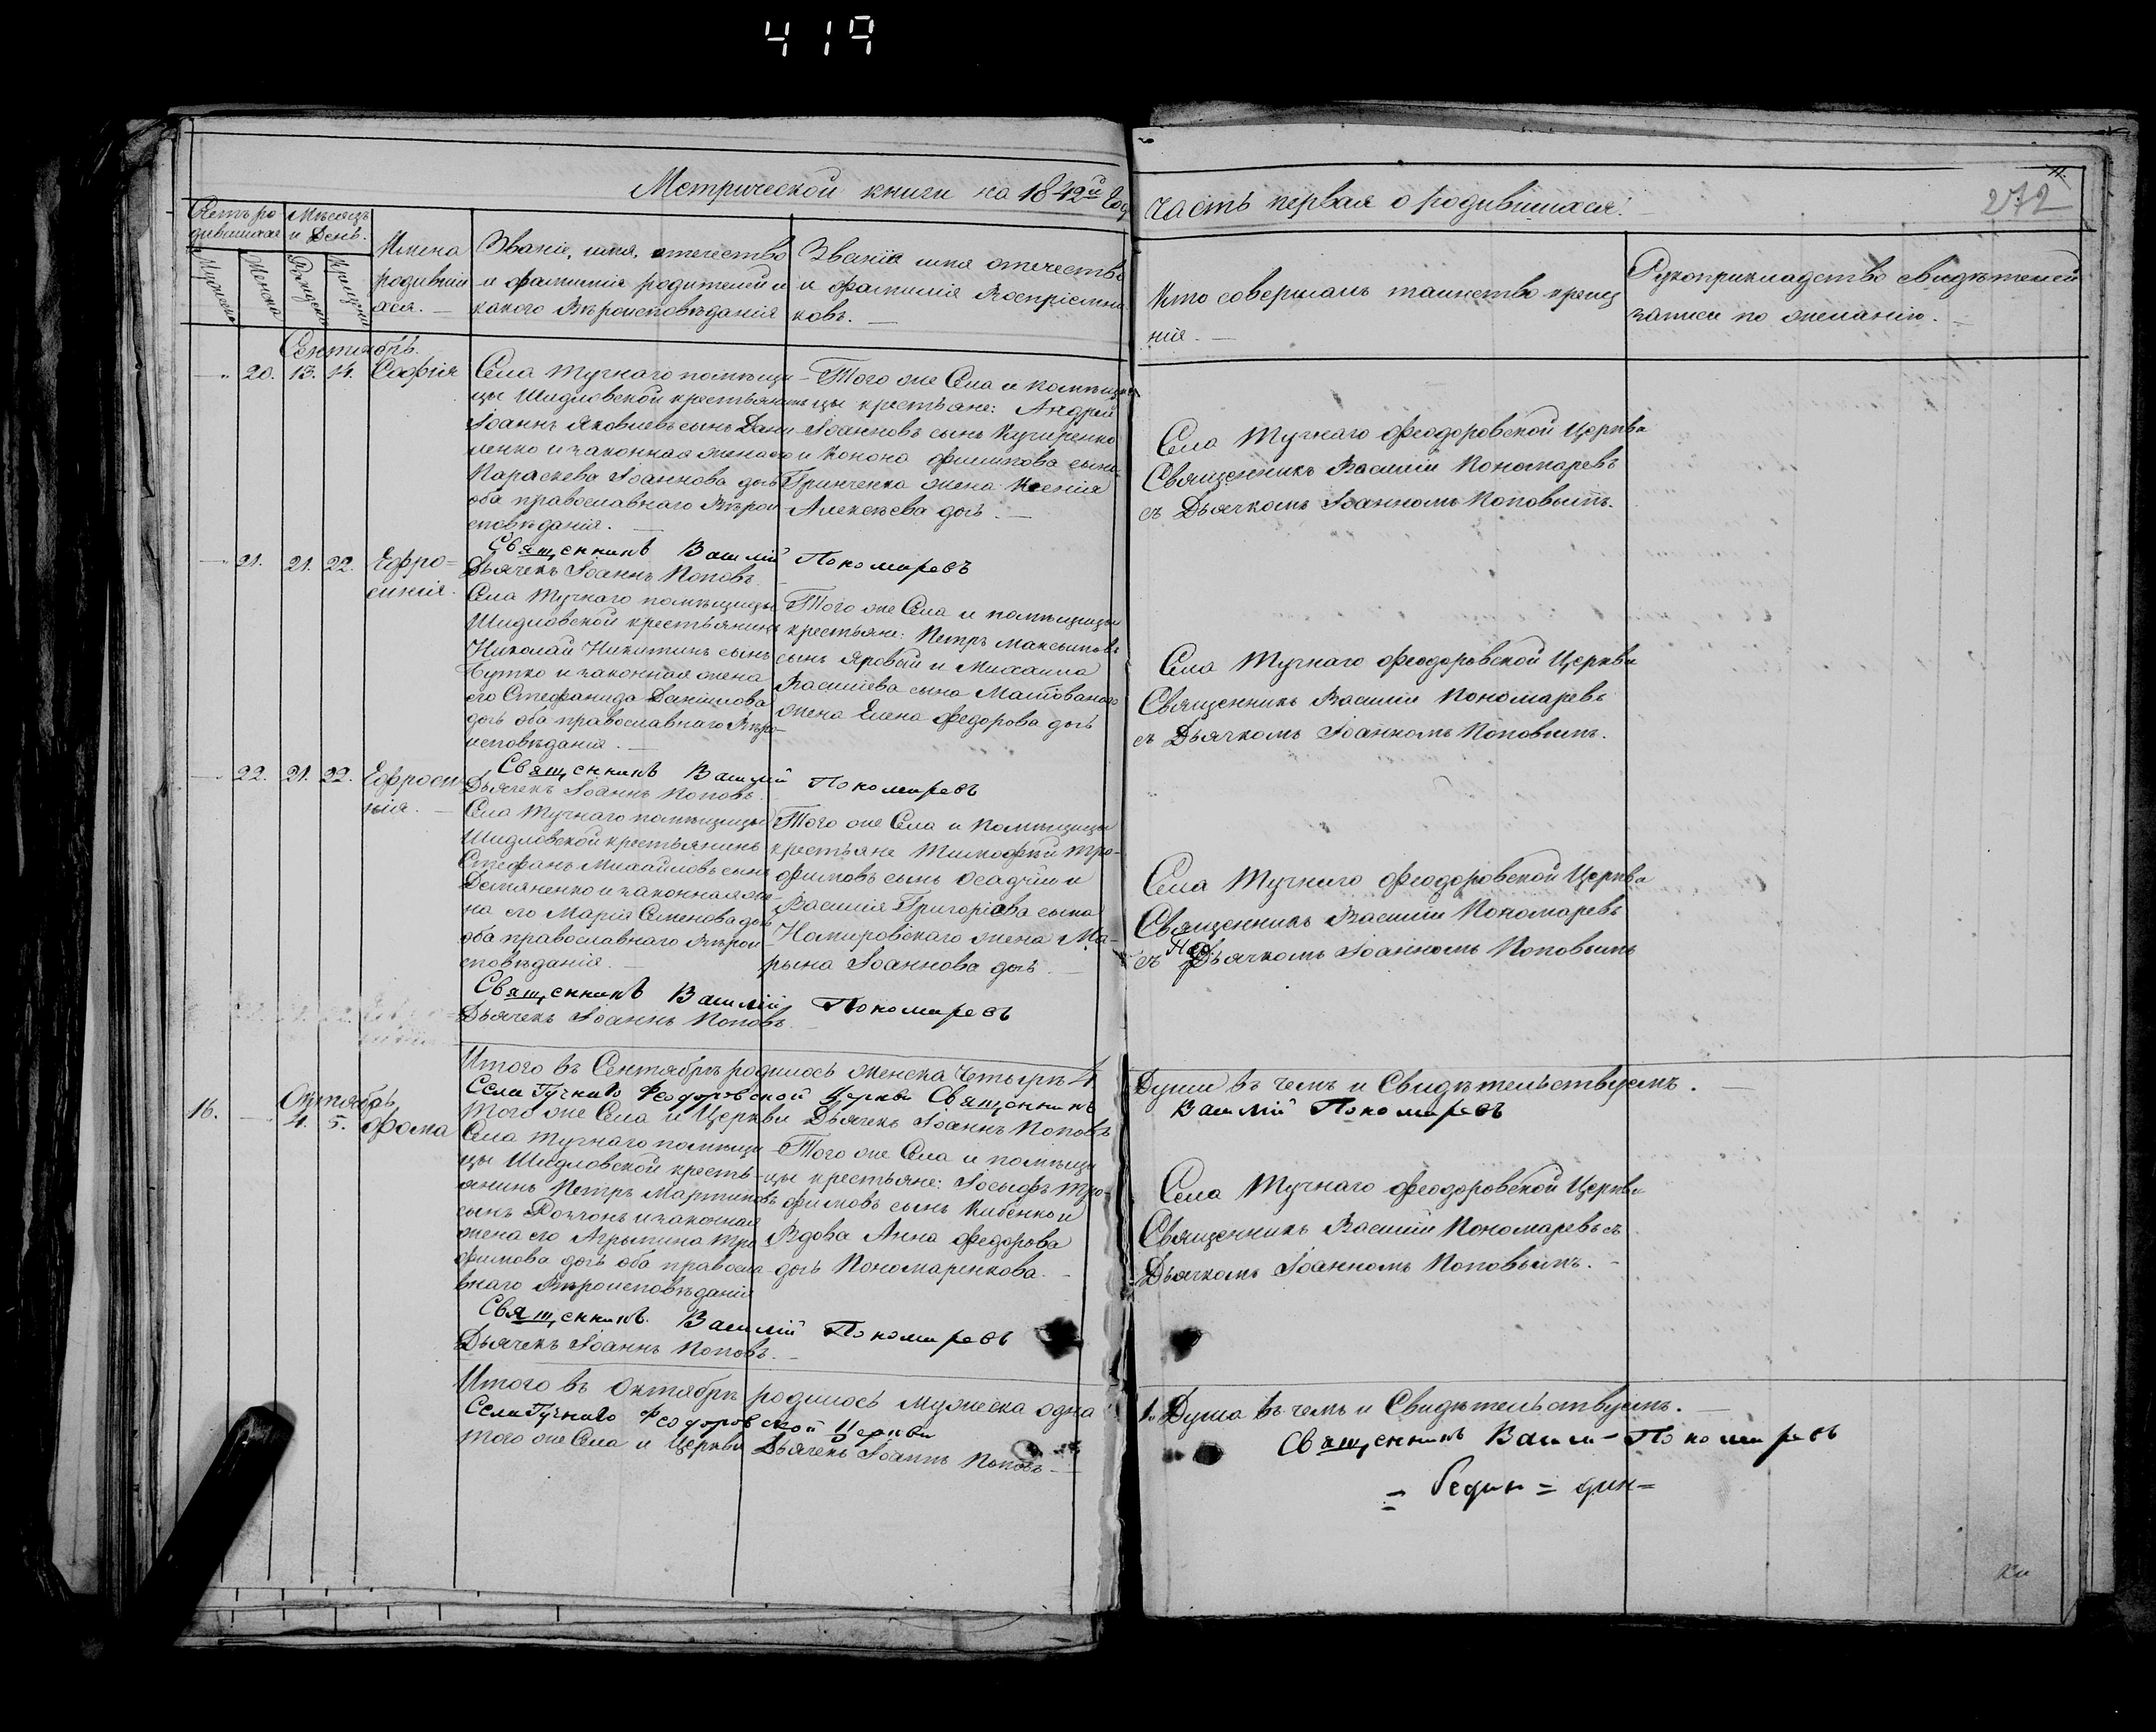 419
Метрической книги на 1842й Год
часть первая о родившихся.
272
Счетъ ро
дившихся
Мѣсяцъ
и День.
Мужеска
Женска
Рожденія
Крещенія
Имена
родивши
хся.
Званіе, имя, отечество
и фамилія родителей и
какого Вѣроисповѣданія
Званіе имя отечество
и фамилія Воспріемни
ковъ.
Кто совершалъ таинство креще
нія.
Рукоприкладство свидѣтелей
записи по желанію.
Сентябрь.
20. 13. 14. Софія
Села Тучнаго помѣщи
цы Шидловской крестьянинъ
Іоаннъ Яковлевъ сынъ Дани
ленко и законная жена его
Параскева Іоаннова дочь
оба православнаго Вѣрои
сповѣданія.
Того же Села и помѣщи
цы крестьяне: Андрей
Іоанновъ сынъ Кучеренко
и Конона Филипова сына
Гринченка жена Ксенія
Алексѣева дочь.
Села Тучнаго Феодоровской Церкви
Священникъ Василій Пономаревъ
съ Дьячкомъ Іоанномъ Поповымъ.
Священникъ Василій Пономаревъ
Дьячекъ Іоаннъ Поповъ.
21. 21. 22. Ефро=
синія.
Села Тучнаго помѣщицы
Шидловской крестьянинъ
Николай Никитинъ сынъ
Бутко и законная жена
его Стефанида Данiилова
дочь оба православнаго Вѣро-
исповѣданія.
Того же Села и помѣщицы
крестьяне: Петръ Максимовъ
сынъ Яровый и Михаила
Василіева сына
жена Елена Федорова дочь
Села Тучнаго Феодоровской Церкви
Священникъ Василій Пономаревъ
съ Дьячкомъ Іоанномъ Поповымъ.
Священникъ Василій Пономаревъ
Дьячекъ Іоаннъ Поповъ.
22. 21. 22. Ефроси
нія.
Села Тучнаго помѣщицы
Шидловской крестьянинъ
Стефанъ Михайловъ сынъ
Демяненко и законная же-
на его Марія Семенова дочь
оба православнаго Вѣрои
сповѣданія.
Того же Села и помѣщицы
крестьяне Тимофѣй Тро-
фимовъ сынъ Осадчій и
Василія Григоріева сына
жена Ма-
рына Іоаннова дочь.
Села Тучнаго Феодоровской Церкви
Священникъ Василій Пономаревъ
съ Дьячкомъ Іоанномъ Поповымъ
Священникъ Василій Пономаревъ
Дьячекъ Іоаннъ Поповъ.
Итого въ Сентябрѣ родилось женска Четырѣ 4
Души въ чемъ и Свидѣтельствуемъ.
Села Тучнаго Феодоровской Церкви Священникъ
Василій Пономаревъ
Того же Села и Церкви Дьячекъ Іоаннъ Поповъ
Октябрь
16. 4. 5. Фома
Села Тучнаго помѣщи
цы Шидловской кресть-
янинъ Петръ Мартиновъ
сынъ и законная
жена его Агрыпина Тро
фимова дочь оба правосла
внаго Вѣроисповѣданія
Того же Села и помѣщи
цы крестьяне: Іосыфъ Тро-
фимовъ сынъ и
Вдова Анна Федорова
дочь Пономаренкова.
Села Тучнаго Феодоровской Церкви
Священникъ Василій Пономаревъ съ
Дьячкомъ Іоанномъ Поповымъ.
Священникъ Василій Пономаревъ
Дьячекъ Іоаннъ Поповъ.
Итого въ Октябрѣ родилось мужеска одна
1. Душа въ чемъ и Свидѣтельствуемъ.
Села Тучнаго Феодоровской Церкви
Священникъ Василій Пономаревъ
Того же Села и Церкви Дьячекъ Іоаннъ Поповъ